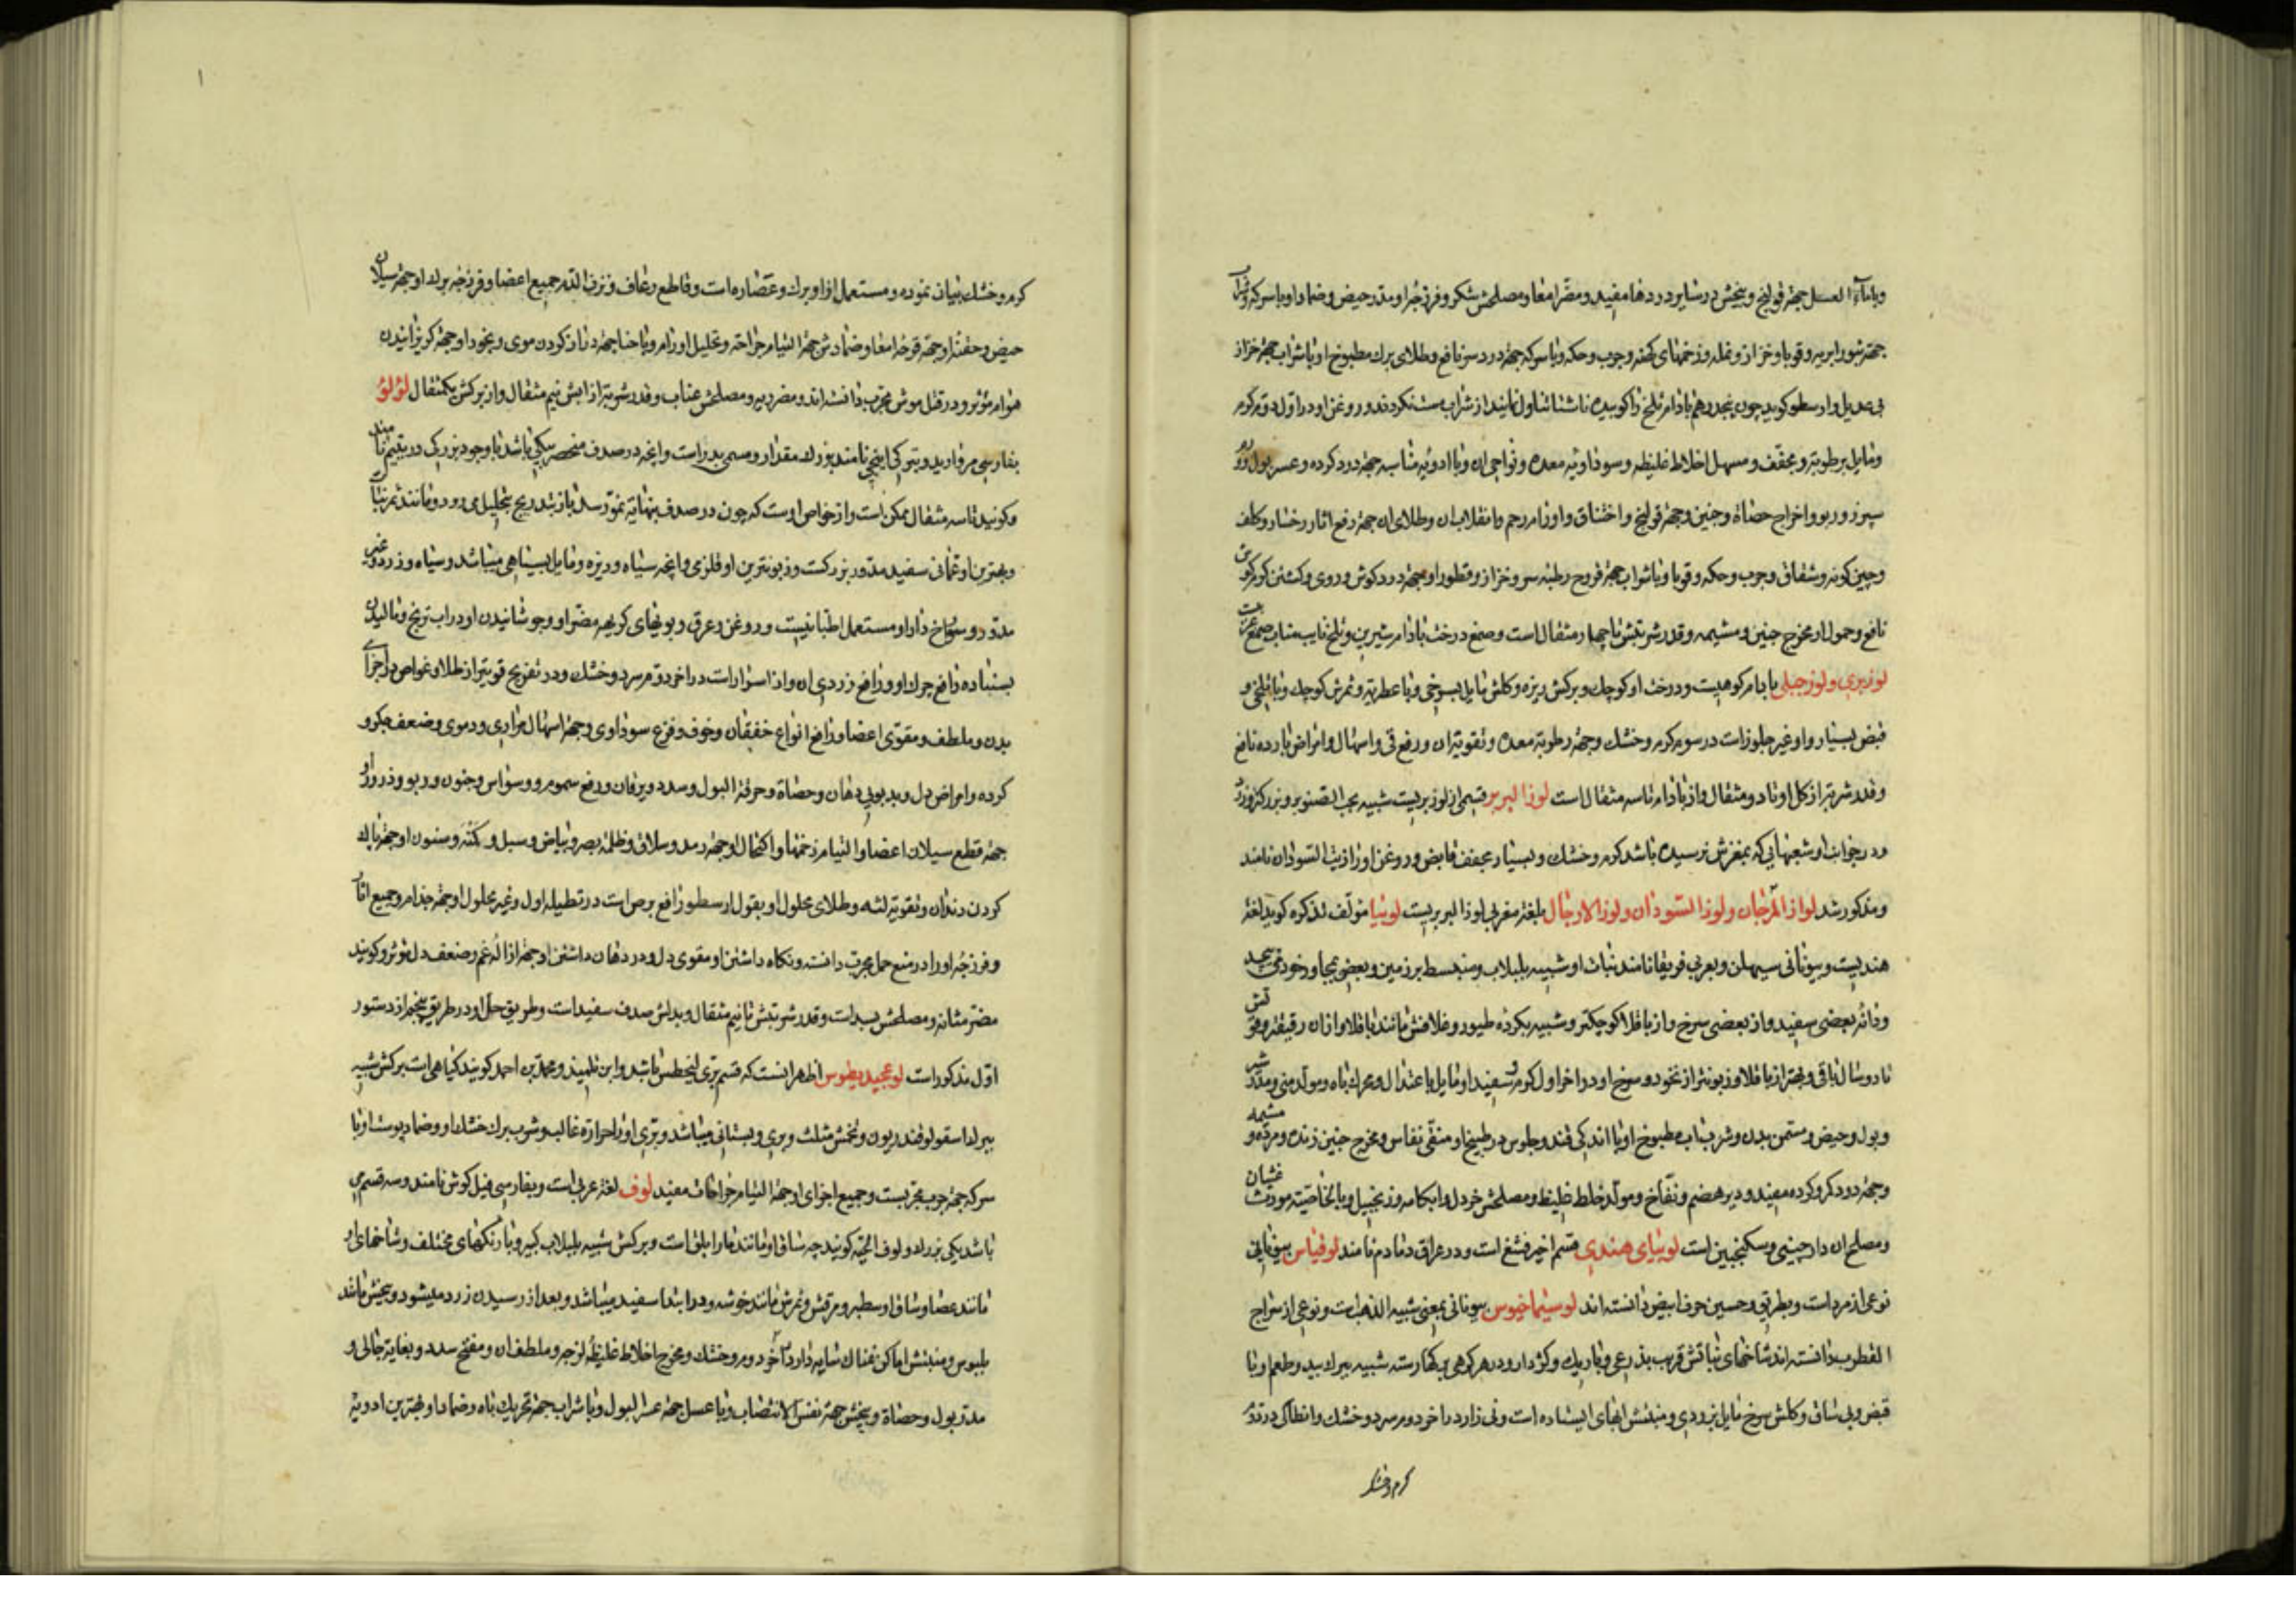 وبا ماء العسل جهة قولنج و بیخش در سایر دردها مفید و مضر امعا و مصلحش شکر و فرزجهٔ او مدر حیض و ضماد او با سرکه و شراب
جهة بثور لبنیه و قوبا و خزاز و نمله و زخمهای کهنه و جرب و حکه و با سرکه جهة درد سر نافع و طلای برک مطبوخ او با شراب جهة خزاز
بی عدیل و ارسطو کوید چون پنجدرهم بادام تلخ را کوبیده ناشتا تناول نمایند از شراب مست نکردند و روغن او در اول دوم کرم
و مایل برطوبة و مجفف و مسهل اخلاط غلیظه و سوداویه معده و نواحی ان و با ادویه مناسبه جهة درد کرده و عسر بول و درد
سپرز و ربو و اخراج حصاة و جنین و جهة قولنج و اختناق و اورام رحم و انقلاب ان و طلای ان جهة رفع اثار رخسار و کلف
و چین کونه و شقاق و جرب و حکه و قوبا و با شراب جهة قروح رطبه سر و خزاز و قطور او جهة درد کوش و دوی و کشتن کرم کوش
نافع و حمول او مخرج جنین و مشیمه و قدر شربتش تا چهار مثقال است و صمغ درخت بادام شیرین و تلخ نایب مناب صمغ عربیست
لوز بری و لوز جبلی بادام کوهیست و درخت او کوچك و برکش ریزه و کلش مایل بسرخی و با عطریة و ثمرش کوچك و با تلخی و
قبض بسیار و او غیر جلوز است در سوم کرم و خشك و جهة رطوبة معده و تقویة ان و رفع قی و اسهال و امراض بارده نافع
و قدر شربتة از کل او تا دو مثقال و از بادام تا سه مثقال است لوز البربر قسمی از لوز بریست شبیه بحب الصنوبر و بزرکتر و زرد
و در جوانب او شعبهایی که بمغزش نرسیده باشد کرم و خشك و بسیار مجفف قابض و روغن او را زیت السودان نامند
و مذکور شد لواز المرجان و لوز السودان و لوز الارجال بلغة مغربی لوز البربریست لوبیا مولف تذکره کوید لغة
هندیست و بیونانی سیملن و بعربی فریقا نامند نبات او شبیه بلبلاب و منبسط بر زمین و بعضی بمجاور خود می پیچد
و دانه بعضی سفید و از بعضی سرخ و از باقلا کوچکتر و شبیه بکرده طیور و غلافش مانند باقلا و از ان رقیقتر و قوتش
تا دو سال باقی و بهتر از باقلا و زبونتر از نخود و سرخ او در اخر اول کرم و سفید او مایل باعتدال و محرك باه و مولد منی و مدر شیر
و بول و حیض و مسمن بدن و شرب اب مطبوخ او با اندکی قند و جلوس در طبیخ او منقی نفاس و مخرج جنین زنده و مرده و مشیمه
و جهة درد کمر و کرده مفید و دیر هضم و نفاخ و مولد خلط غلیظ و مصلحش خردل و ابکامه و زنجبیل و با لخاصیته مورث غثیان
و مصلح ان دارچینی و سکنجبین است لوبیای هندی قسم اخیر فشغ است و در عراق دنادم نامند لوفیاس بیونانی
نوعی از مرد است و بطریق و حسین حرف ابیض دانسته اند لوسیماخیوس بیونانی بمعنی شبیه الذهب است و نوعی از سراج
القطرب دانسته اند شاخهای نباتش قریب بذرعی و باریك و کژدار و در هر کرهی برکها رسته شبیه ببرك بید و طعم او با
قبض و بی ساق و کلش سرخ مایل بزردی و منبتش ابهای ایستاده است و نی زارد در اخر دوم سرد و خشك و انطاکی در تذکره
کرم و خشك
کرم و خشك بیان نموده و مستعمل ازاو برك و عصاره است و قاطع رعاف و نزف الدم جمیع اعضا و فرزجهٔ برك او جهة سیلان
حیض و حقنهٔ او جهة قرحهٔ امعا و ضمادش جهة التیام جراحة و تحلیل اورام و با حنا جهة دراز کردن موی و بخور او جهة کریزانیدن
هوام مؤثر و در قتل موش مجرب دانسته اند و مضر ریه و مصلحش عناب و قدر شربتة از ابش نیم مثقال و از برکش یکمثقال لؤلؤ
بفارسی مروارید و بترکی اینجی نامند بزرك مقدار او مسمی بدر است و انچه در صدف منحصر بیکی باشد با وجود بزرکی در یتیم نامند
و کویند تا سه مثقال ممکن است و از خواص اوست که چون در صدف بنهایة نمو رسد باز بتدریج بتحلیل می رود و مانند ثمر نبات
و بهترین او عمانی سفید مدور بزرکست و زبونترین او قلزمی و انچه سیاه و ریزه و مایل بسیاهی میباشد و سیاه و زرد و غیر
مدور و سوراخ دار او مستعمل اطبا نیست و روغن و عرق و بویهای کریهه مضر او و جوشانیدن او در اب ترنج و مالیدن
بسنباده رافع چرك او و رافع زردی ان و از اسرار است در اخر دوم سرد و خشك و در تفریح قویتر از طلا و غواص در اجزای
بدن و ملطف و مقوی اعضا و رافع انواع خفقان و خوف و فزع سوداوی و جهة اسهال مراری و دموی و ضعف جکر و
کرده و امراض دل و بدبویی دهان و حصاة و حرقة البول و سدد و یرقان و رفع سموم و وسواس و جنون و ربو و ذرور او
جهة قطع سیلان اعضا و التیام زخمها و اکتحال او جهة رمد و سلاق و ظلمة بصر و بیاض و سبل و کمنه و سنون او جهة پاك
کردن دندان و تقویة لثه و طلای محلول او بقول ارسطو رافع برص است در تطیله اول و غیر محلول او جهة جذام و جمیع اثار
و فرزجهٔ او را در منع حمل مجرب دانسته و نکاه داشتن او مقوی دل و در دهان داشتن او جهة ازالهٔ غم و ضعف دل مؤثر و کویند
مضر مثانه و مصلحش بسد است و قدر شربتش تا نیم مثقال و بدلش صدف سفید است و طریق حل او در طریق پنجم از دستور
اول مذکور است لوغجیدیطوس اظهر انست که قسم بری لنجطس باشد و ابن تلمیذ و محمد بن احمد کویند کیاهی است برکش شبیه
ببرك اسقولوقندریون و تخمش مثلث و بری و بستانی میباشد و بری او را حرارة غالب و شرب برك خشك او و ضماد پوست او با
سرکه جهة جرب مجربست و جمیع اجزای او جهة التیام جراحات مفید لوف لغة عربی است و بفارسی فیل کوش نامند و سه قسم می
باشد یکی بزرك و لوف الحیة کویند چه ساق او مانند مار ابلق است و برکش شبیه بلبلاب کبیر و با رنکهای مختلف و شاخهای او
مانند عصا و ساق او سطبر و مرقش و ثمرش مانند خوشه و در ابتدا سفید میباشد و بعد از رسیدن زرد میشود و بیخش مانند
بلبوس و منبتش اماکن نمناك سایه دار در اخر دوم کرم و خشك و مخرج اخلاط غلیظهٔ لزجه و ملطف ان و مفتح سدد و بغایة جالی و
مدر بول و حصاة و بیخش جهة نفس الانتصاب و با عسل جهة عسر البول و با شراب جهة تحریك باه و ضماد او بهترین ادویة